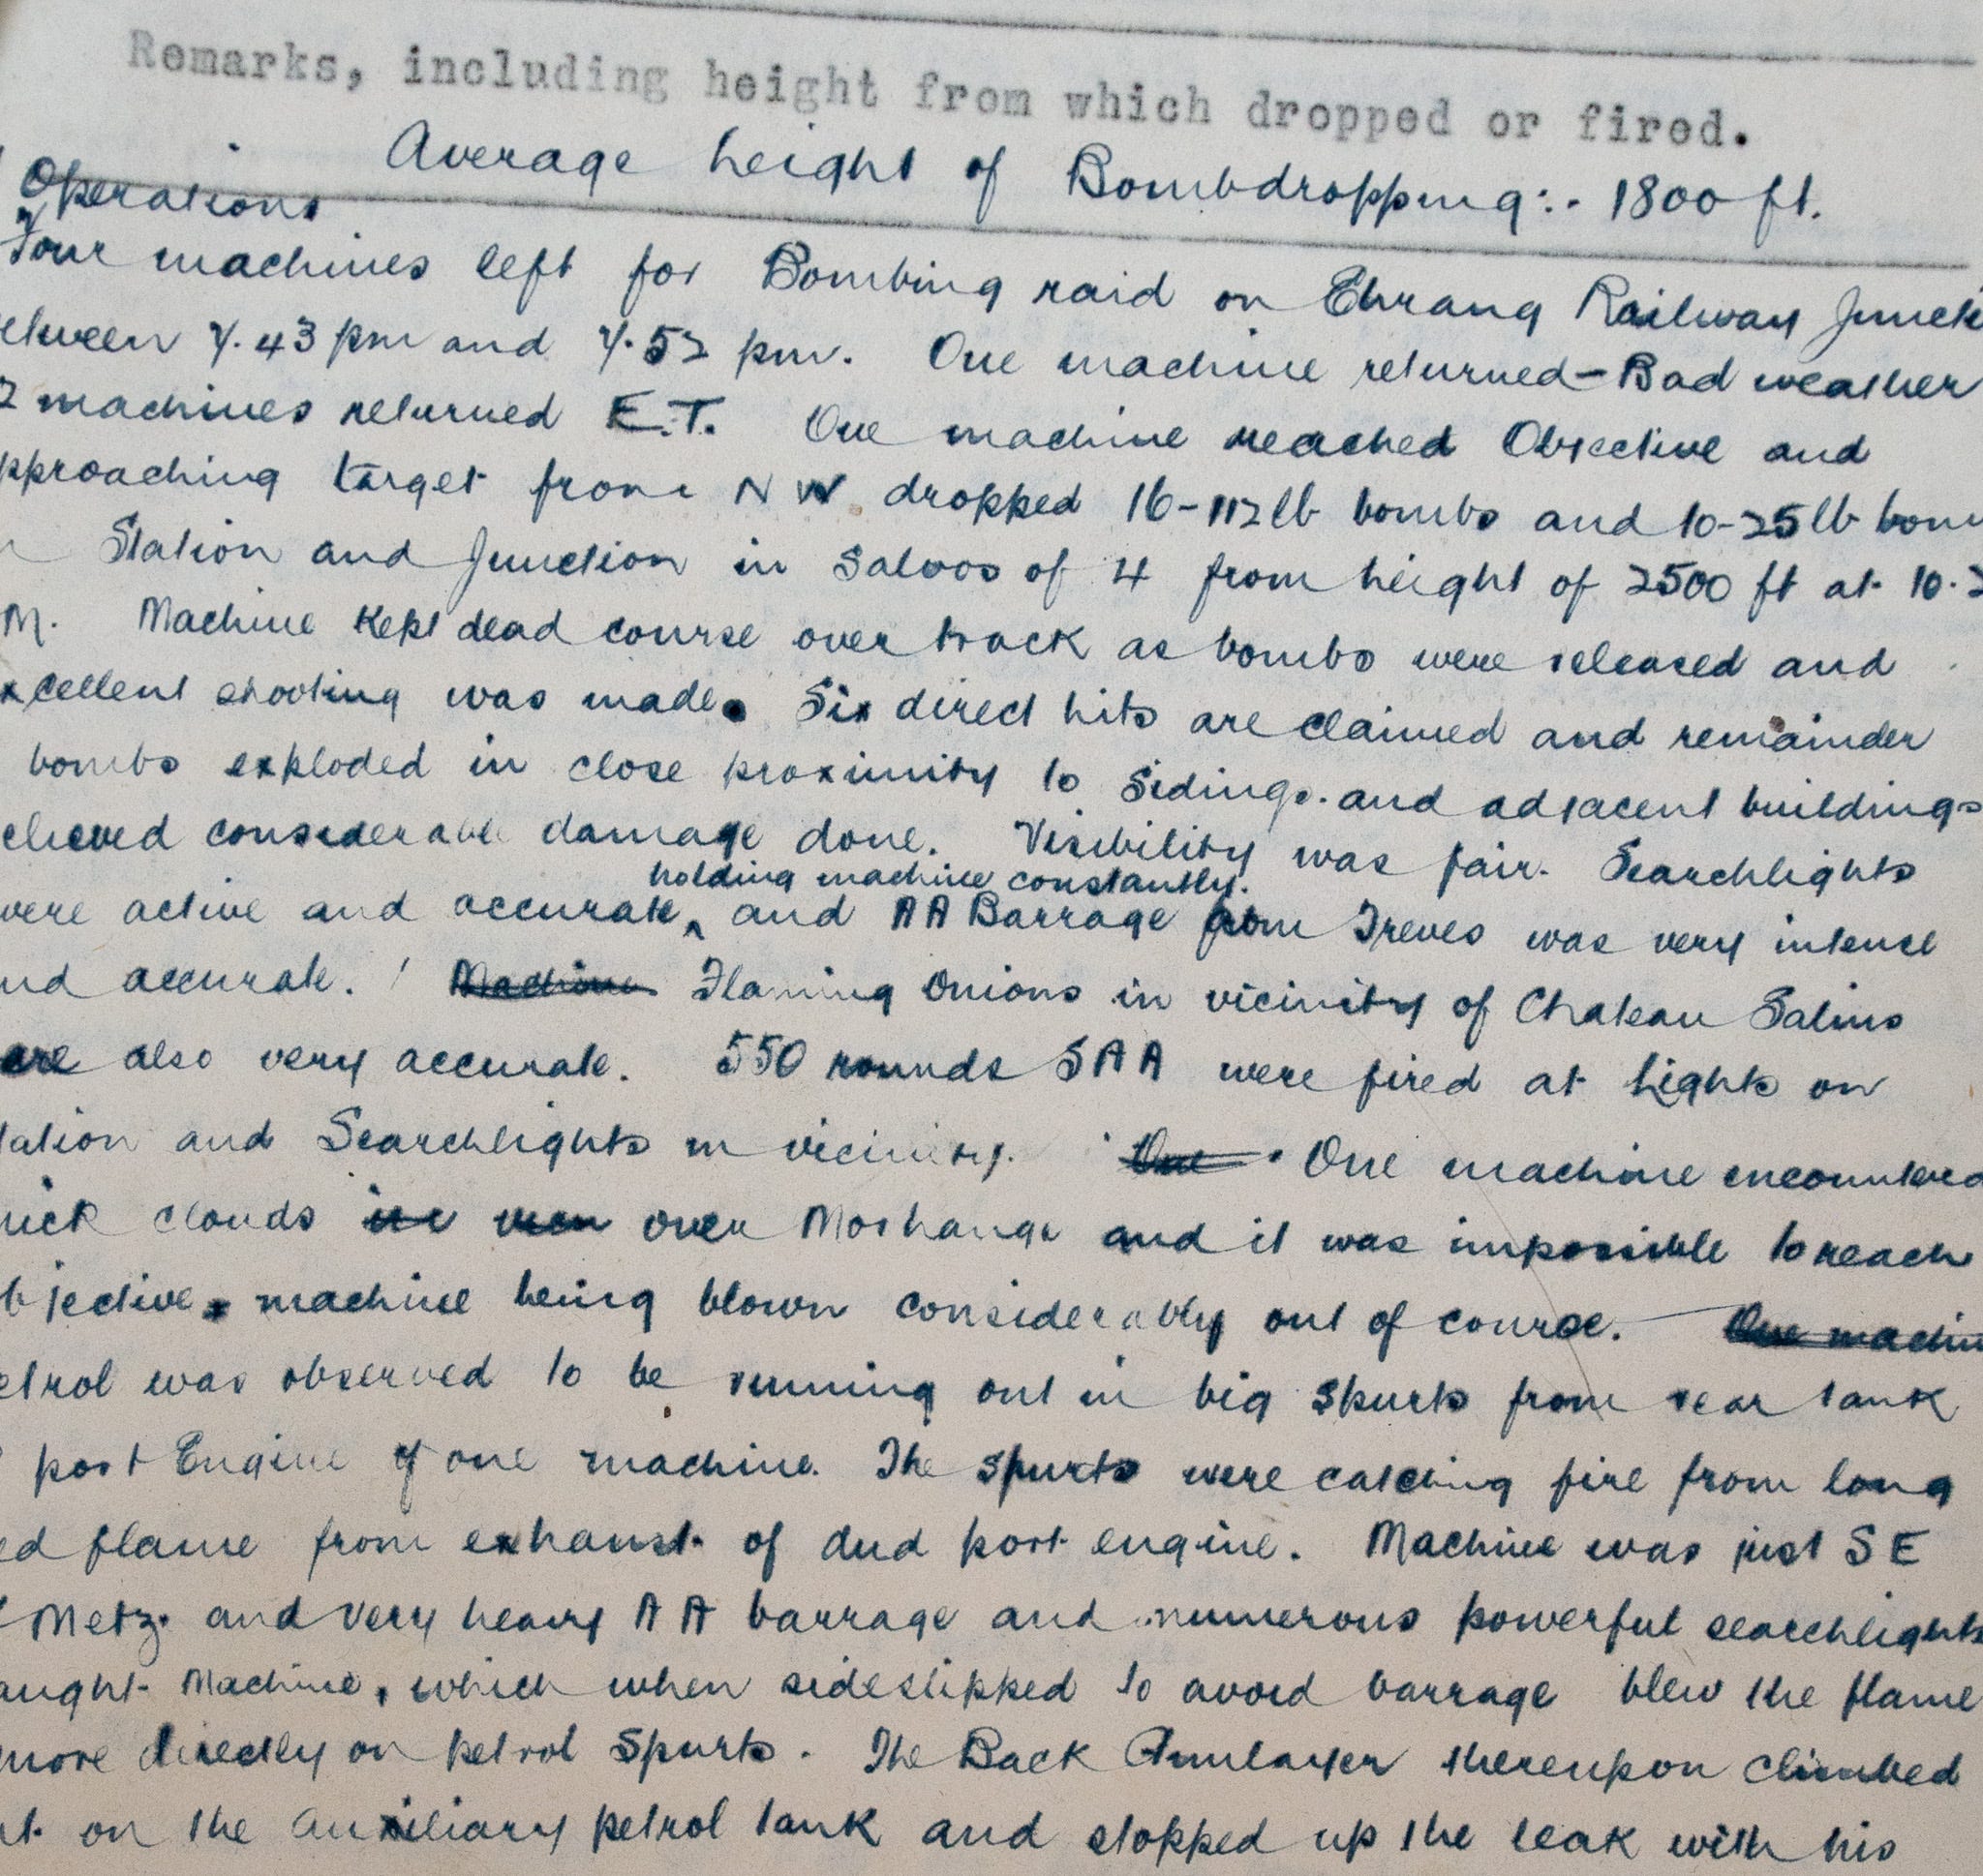 Remarks, including height from which dropped or fired.
Average height of Bombdropping:- 1800 ft.
Operations
Four machines left for Bombing raid on Ehrang Railway Juncti
etween 7.43 pm and 7.52 pm. One machine returned - Bad weather
2 machines returned E.T. One machine reached Objective and
pproaching target from NW dropped 16-112 lb bombs and 10-25 lb bom
Station and Junction in salvos of 4 from height of 2500 ft at 10.2
M. Machine kept dead course over track as bombs were released and
xcellent shooting was made. Six direct hits are claimed and remainder
bombs exploded in close proximity to Sidings. and adjacent buildings
elieved considerable damage done. Visibility was fair. Searchlights
holding machine constantly.
were active and accurate, and AA Barrage from Treves was very intense
nd accurate. Machine Flaming Onions in vicinity of Chateau Salins
ere also very accurate. 550 rounds SAA were fired at lights on
tation and Searchlights in vicinity. One One machine encountered
hick clouds over Morhange and it was impossible to reach
bjective machine being blown considerably out of course. One machin
etrol was observed to be running out in big spurts from rear tank
port Engine of one machine. The spurts were catching fire from long
ed flame from exhaust of dud port engine. Machine was just SE
Metz. and very heavy AA barrage and numerous powerful searchlights
aught Machine, which when sideslipped to avoid barrage blew the flame
more directly on petrol spurts. The Back Gunlayer thereupon climbed
ut on the auxiliary petrol tank and stopped up the leak with his